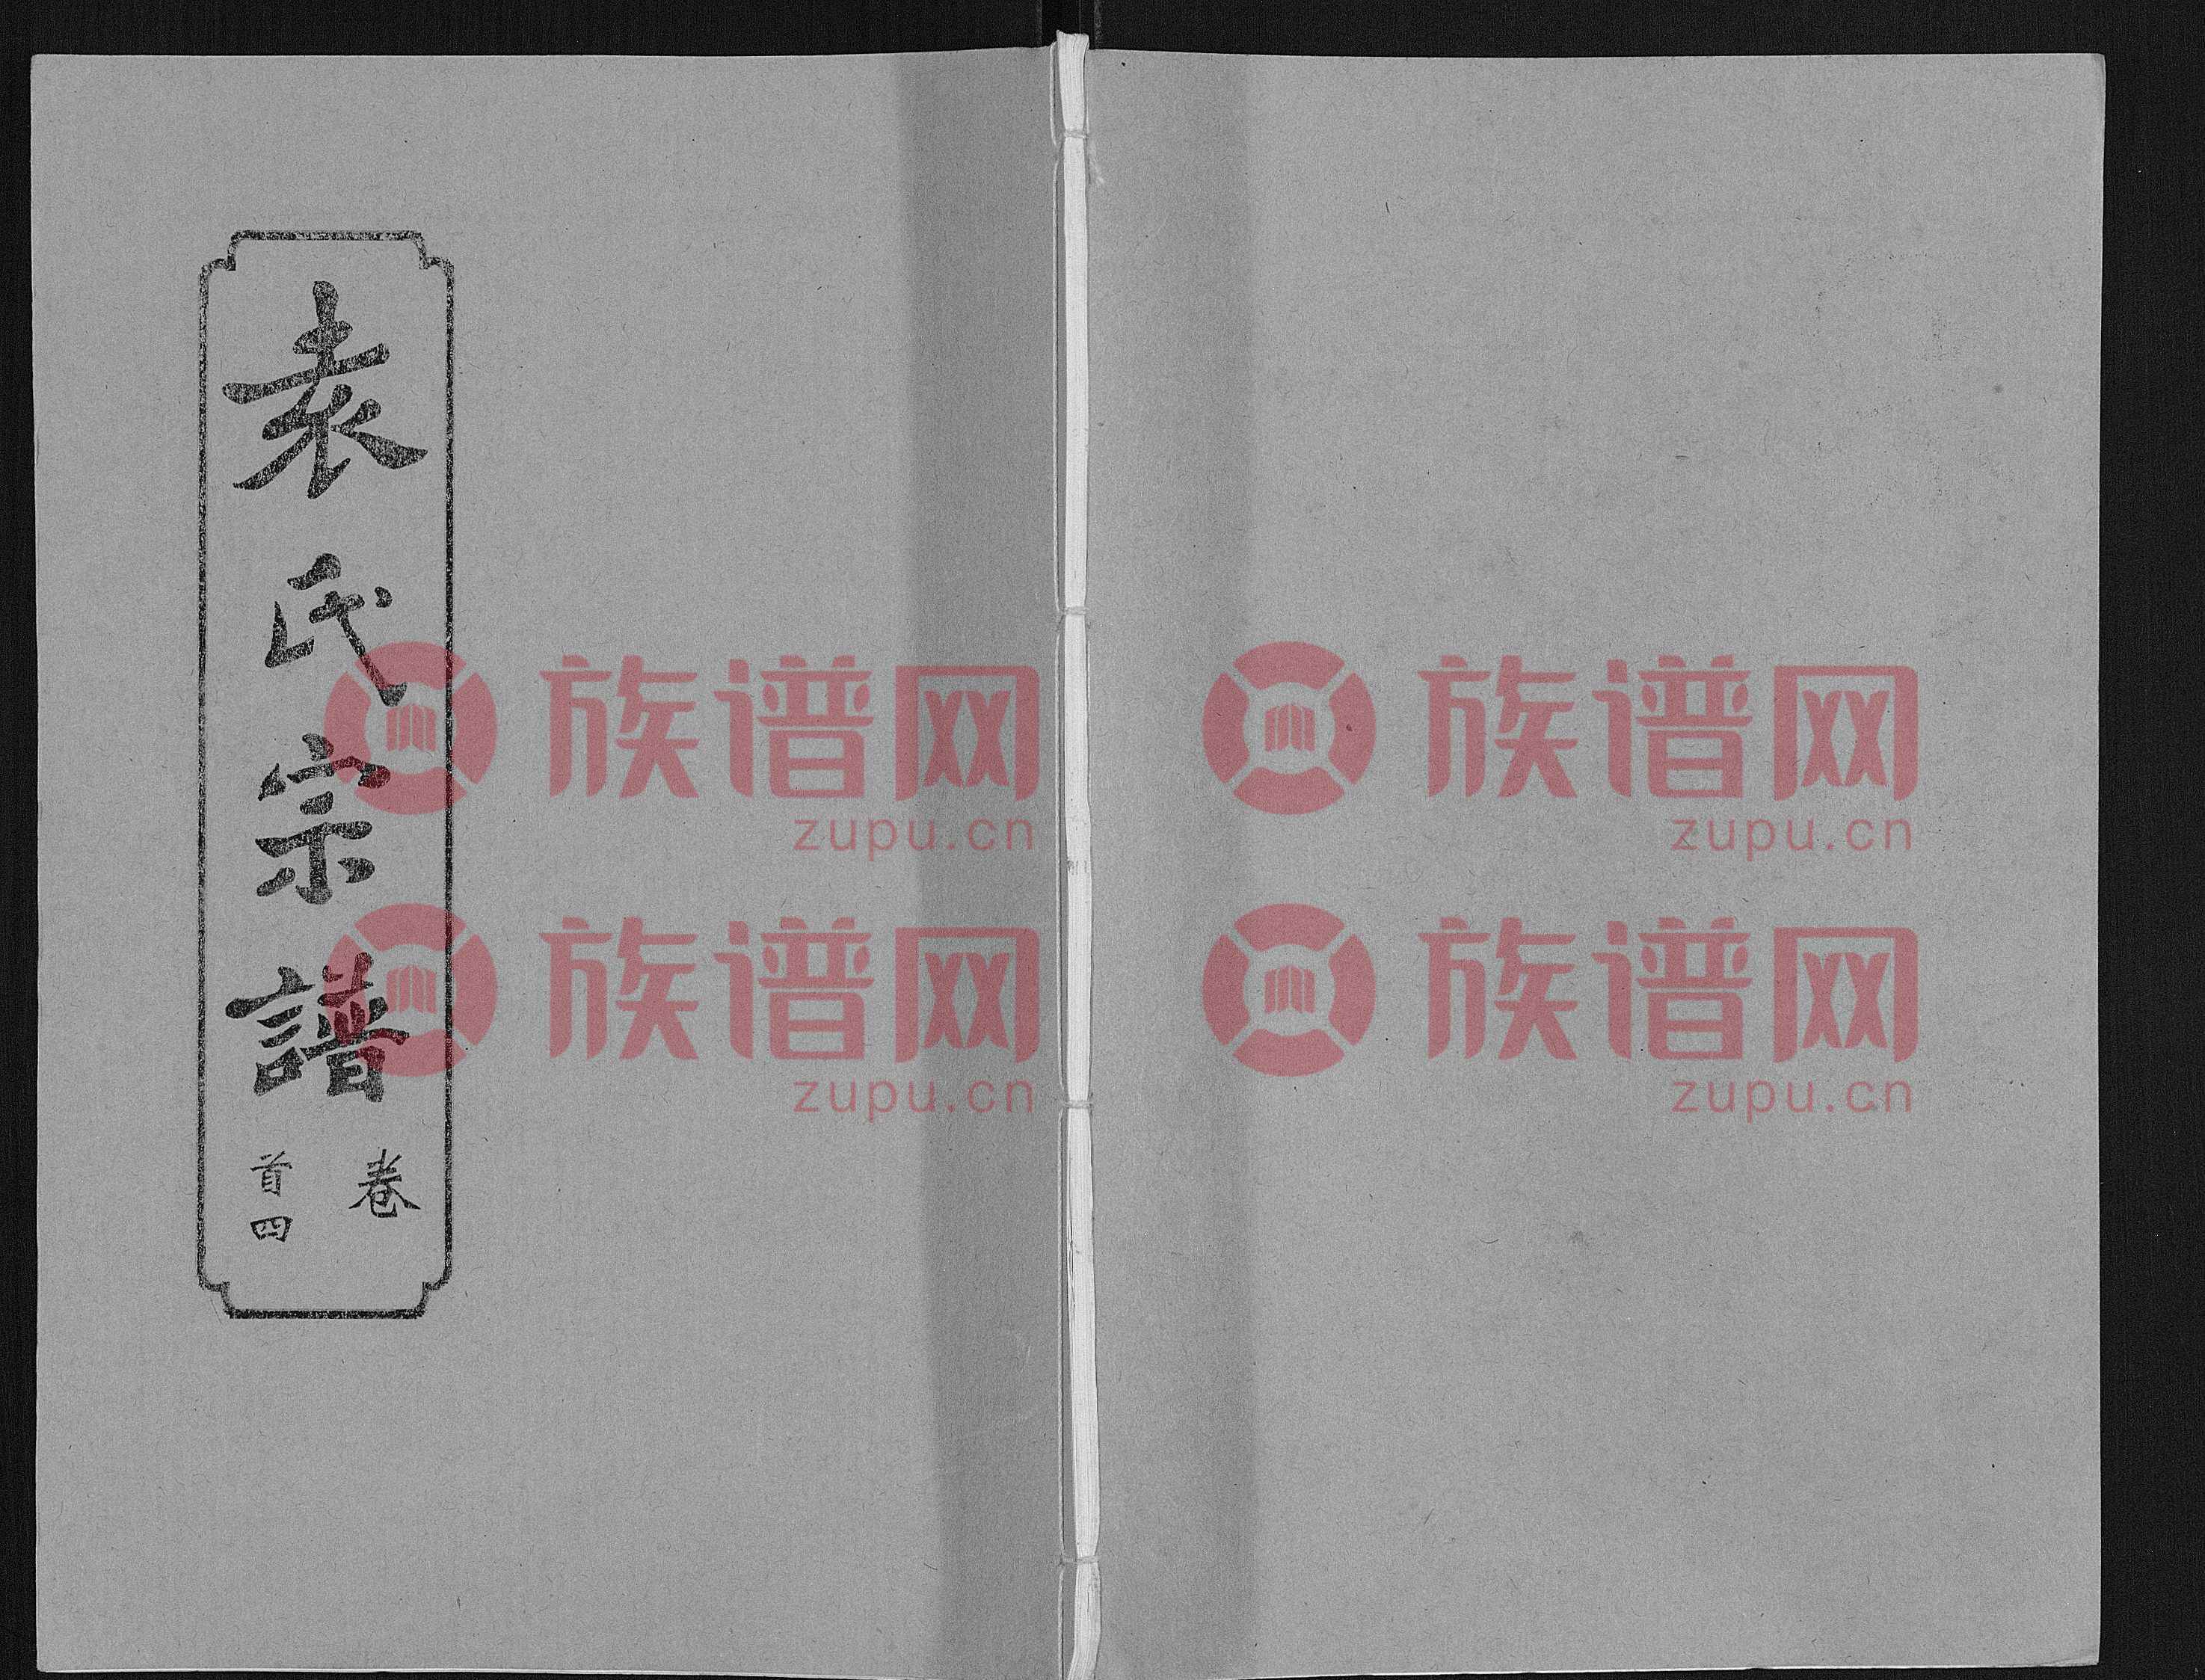 袁氏宗譜
卷
首四
族谱网
zupu.cn
族谱网
zupu.cn
族谱网
zupu.cn
族谱网
zupu.cn